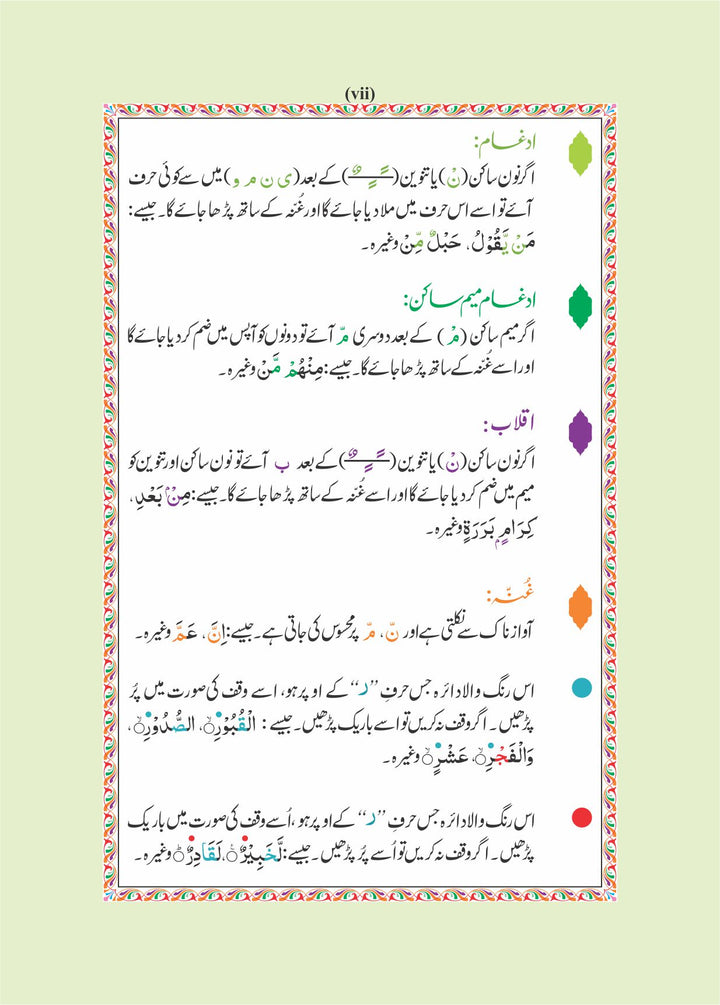 (vii)
ادغام:
اگر نون ساکن (نْ) یا تنوین (ــًــٍــٌ) کے بعد (ی ن م و) میں سے کوئی حرف
آئے تو اسے اس حرف میں ملا دیا جائے گا اور غُنّہ کے ساتھ پڑھا جائے گا۔ جیسے:
مَنْ يَّقُوْلُ، حَبْلٌ مِّنْ وغیرہ۔
ادغام میم ساکن:
اگر میم ساکن (مْ) کے بعد دوسری مّ آئے تو دونوں کو آپس میں ضم کر دیا جائے گا
اور اسے غُنّہ کے ساتھ پڑھا جائے گا۔ جیسے: مِنْهُمْ مَّنْ وغیرہ۔
اقلاب:
اگر نون ساکن (نْ) یا تنوین (ــًــٍــٌ) کے بعد ب آئے تو نون ساکن اور تنوین کو
میم میں ضم کر دیا جائے گا اور اسے غُنّہ کے ساتھ پڑھا جائے گا۔ جیسے: مِنْۢ بَعْدِ،
كِرَامٍۭ بَرَرَةٍ وغیرہ۔
غُنّہ:
آواز ناک سے نکلتی ہے اور نّ، مّ پر محسوس کی جاتی ہے۔ جیسے: اِنَّ، عَمَّ وغیرہ۔
اس رنگ والا دائرہ جس حرفِ ”ر“ کے اوپر ہو، اسے وقف کی صورت میں پُر
پڑھیں۔ اگر وقف نہ کریں تو اسے باریک پڑھیں۔ جیسے: الْقُبُوْرِۙ، الصُّدُوْرِۙ،
وَالْفَجْرِۙ، عَشْرٍۙ وغیرہ۔
اس رنگ والا دائرہ جس حرفِ ”ر“ کے اوپر ہو، اُسے وقف کی صورت میں باریک
پڑھیں۔ اگر وقف نہ کریں تو اُسے پُر پڑھیں۔ جیسے: لَّخَبِيْرٌۙ، لَقَادِرٌؕ وغیرہ۔